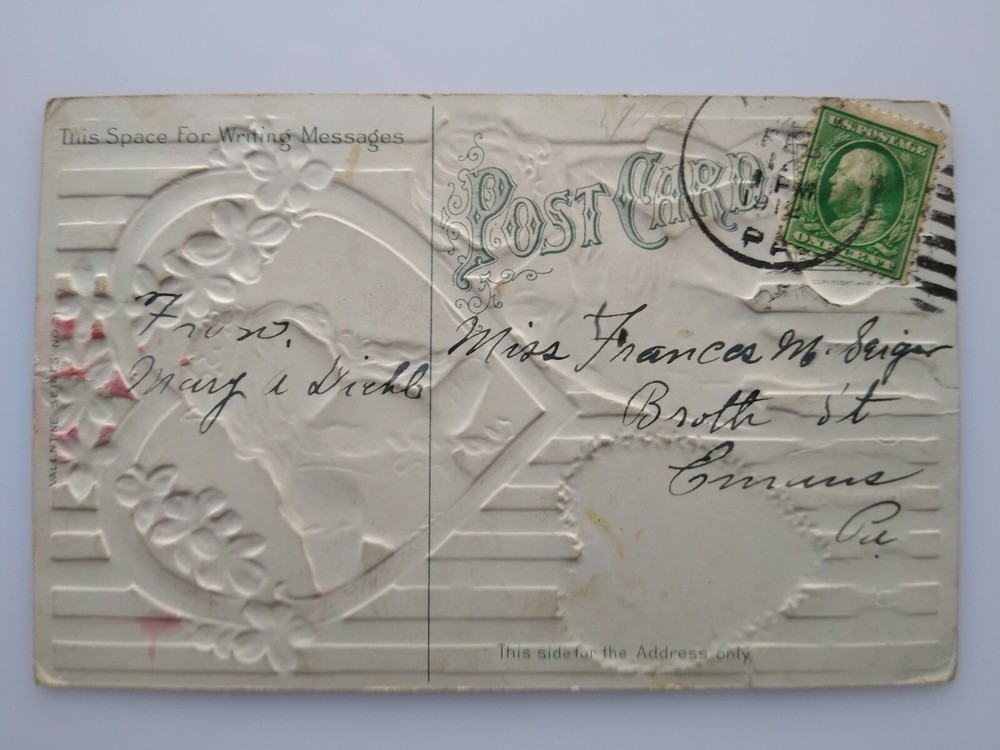 This Space For Writing Messages
POST CARD
U.S. POSTAGE
ONE CENT
From.
Mary A Diehl
Miss Frances M. Seiger
Broth St
Emaus
Pa.
VALENTINE SERIES NO.
This side for the Address only